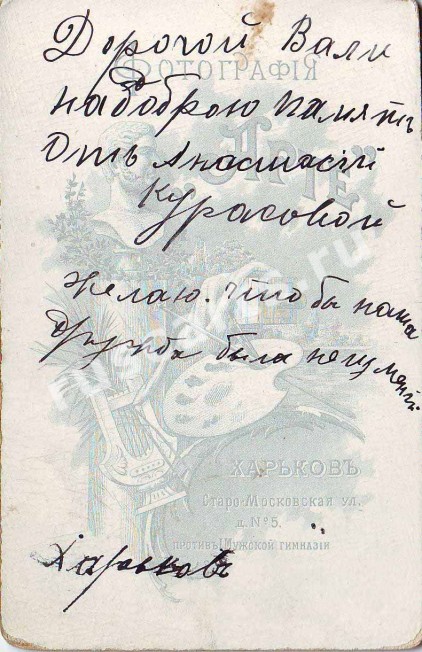 Дорогой Вали
Фотографія
на добрую память
„Arte“
Отъ Анастасій
Курасовой
Желаю. что бы наша
дружба была неизменн.
Харьковъ
Старо-Московская ул.
д. №5.
противъ Мужской гимназіи
Харьковъ